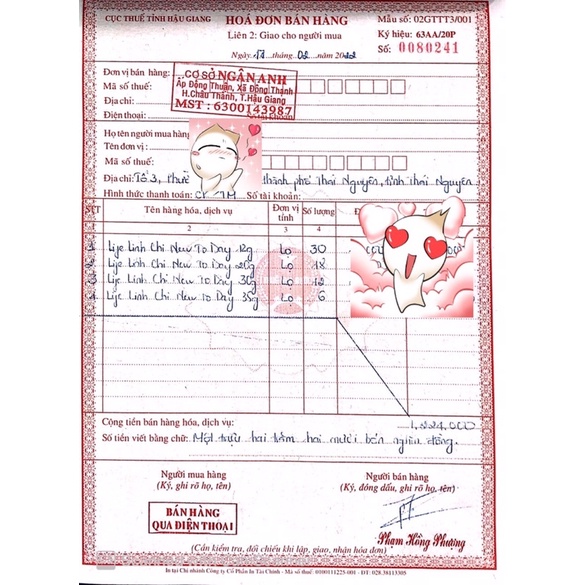 CỤC THUẾ TỈNH HẬU GIANG
HOÁ ĐƠN BÁN HÀNG
Mẫu số: 02GTTT3/001
Liên 2: Giao cho người mua
Ký hiệu: 63AA/20P
Ngày 17 tháng 02 năm 2022
Số: 0080241
Đơn vị bán hàng:
CƠ SỞ NGÂN ANH
Mã số thuế:
Ấp Đông Thuận, Xã Đông Thạnh
Địa chỉ:
H.Châu Thành, T.Hậu Giang
Điện thoại:
Số tài khoản:
MST: 6300143987
Họ tên người mua hàng
Tên đơn vị:
Mã số thuế:
Địa chỉ: Tổ 3, thành phố Thái Nguyên, tỉnh Thái Nguyên
Hình thức thanh toán: Số tài khoản:
STT Tên hàng hóa, dịch vụ Đơn vị tính Số lượng
2 3 4
1 Lije Linh Chi New To Day 12g Lọ 30
2 Lije Linh Chi New To Day 20g Lọ 18
3 Lije Linh Chi New To Day 30g Lọ 12
4 Lije Linh Chi New To Day 35g Lọ 6
Cộng tiền bán hàng hóa, dịch vụ: 1,224,000
Số tiền viết bằng chữ: Một triệu hai trăm hai mươi bốn nghìn đồng.
Người mua hàng
Người bán hàng
(Ký, ghi rõ họ, tên)
(Ký, đóng dấu, ghi rõ họ, tên)
BÁN HÀNG
QUA ĐIỆN THOẠI
Phạm Hồng Phượng
(Cần kiểm tra, đối chiếu khi lập, giao, nhận hóa đơn)
In tại Chi nhánh Công ty Cổ Phần In Tài Chính - Mã số thuế 0100111225-001 - ĐT: 028.38113305